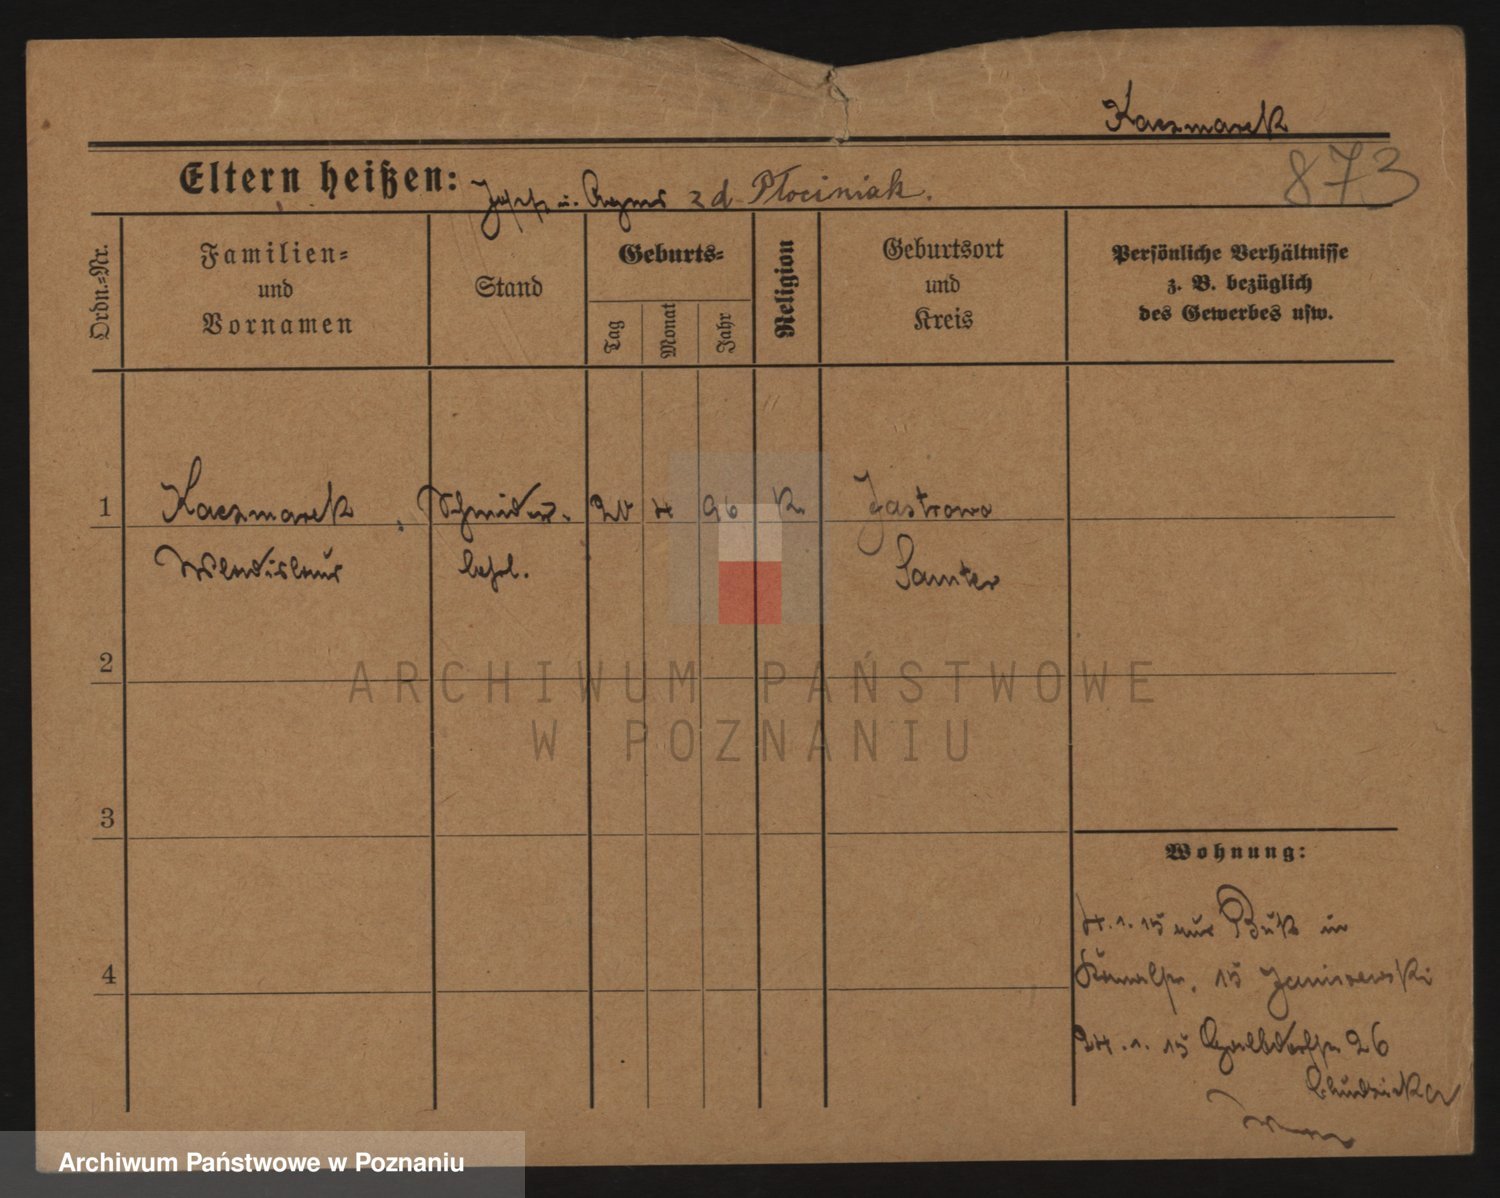 Kaczmarek
873
Eltern heißen: Josef u. Agnes z d Płociniak.
Ordn.=Nr.
Familien=
und
Vornamen
Stand
Geburts=
Tag
Monat
Jahr
Religion
Geburtsort
und
Kreis
Persönliche Verhältnisse
z. B. bezüglich
des Gewerbes usw.
1 Kaczmarek, Schneider. 20 4 96 K. Jastrowo
Wladislaus Samter
2
3
4
Wohnung:
4.1.15 aus Buk in
15 Janiszewski
24.1.15 26
ARCHIWUM PAŃSTWOWE
W POZNANIU
Archiwum Państwowe w Poznaniu